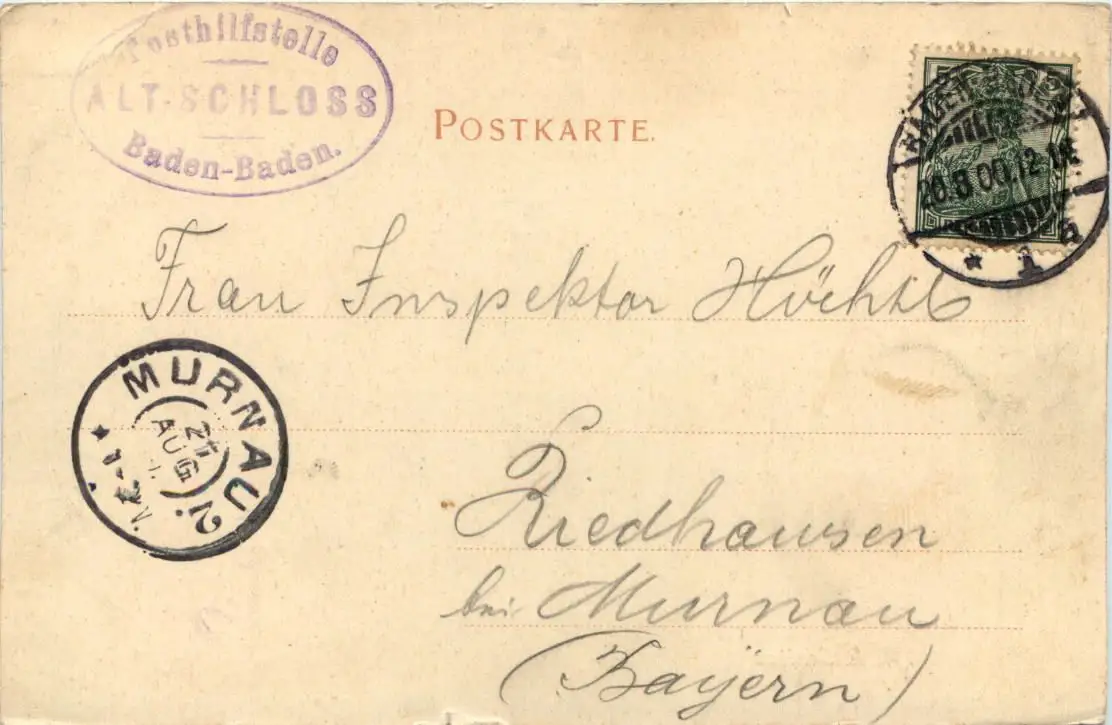 Posthilfstelle
ALT-SCHLOSS
Baden-Baden.
POSTKARTE.
BADEN-BADEN
20.8.00.12-1N
* 1 a
Frau Inspektor Höchtl
MURNAU 2.
AUG
Riedhausen
bei Murnau
(Bayern)